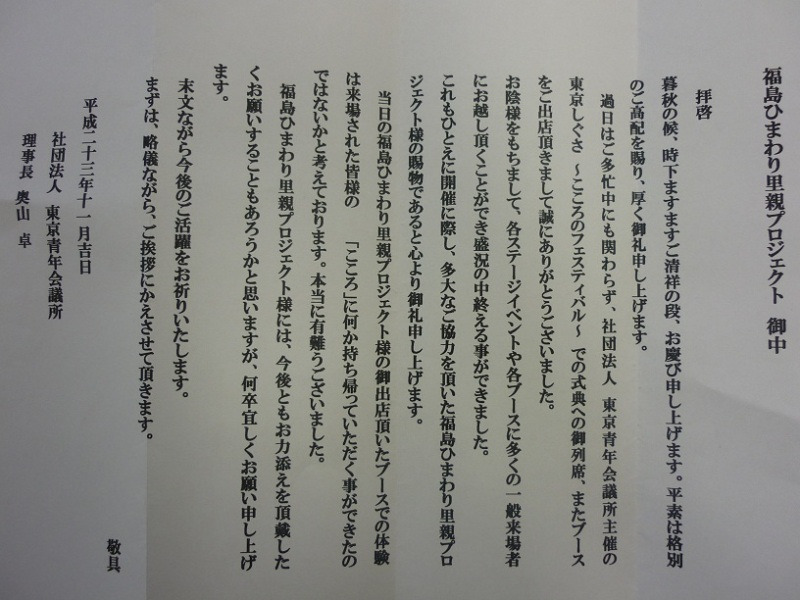 福島ひまわり里親プロジェクト 御中
拝啓
暮秋の候、時下ますますご清祥の段、お慶び申し上げます。平素は格別
のご高配を賜り、厚く御礼申し上げます。
過日はご多忙中にも関わらず、社団法人 東京青年会議所主催の
東京しぐさ ～こころのフェスティバル～ での式典への御列席、またブース
をご出店頂きまして誠にありがとうございました。
お陰様をもちまして、各ステージイベントや各ブースに多くの一般来場者
にお越し頂くことができ盛況の中終える事ができました。
これもひとえに開催に際し、多大なご協力を頂いた福島ひまわり里親プロ
ジェクト様の賜物であると心より御礼申し上げます。
当日の福島ひまわり里親プロジェクト様の御出店頂いたブースでの体験
は来場された皆様の 「こころ」に何か持ち帰っていただく事ができたの
ではないかと考えております。本当に有難うございました。
福島ひまわり里親プロジェクト様には、今後ともお力添えを頂戴した
くお願いすることもあろうかと思いますが、何卒宜しくお願い申し上げ
ます。
末文ながら今後のご活躍をお祈りいたします。
まずは、略儀ながら、ご挨拶にかえさせて頂きます。
敬具
平成二十三年十一月吉日
社団法人 東京青年会議所
理事長 奥山 卓